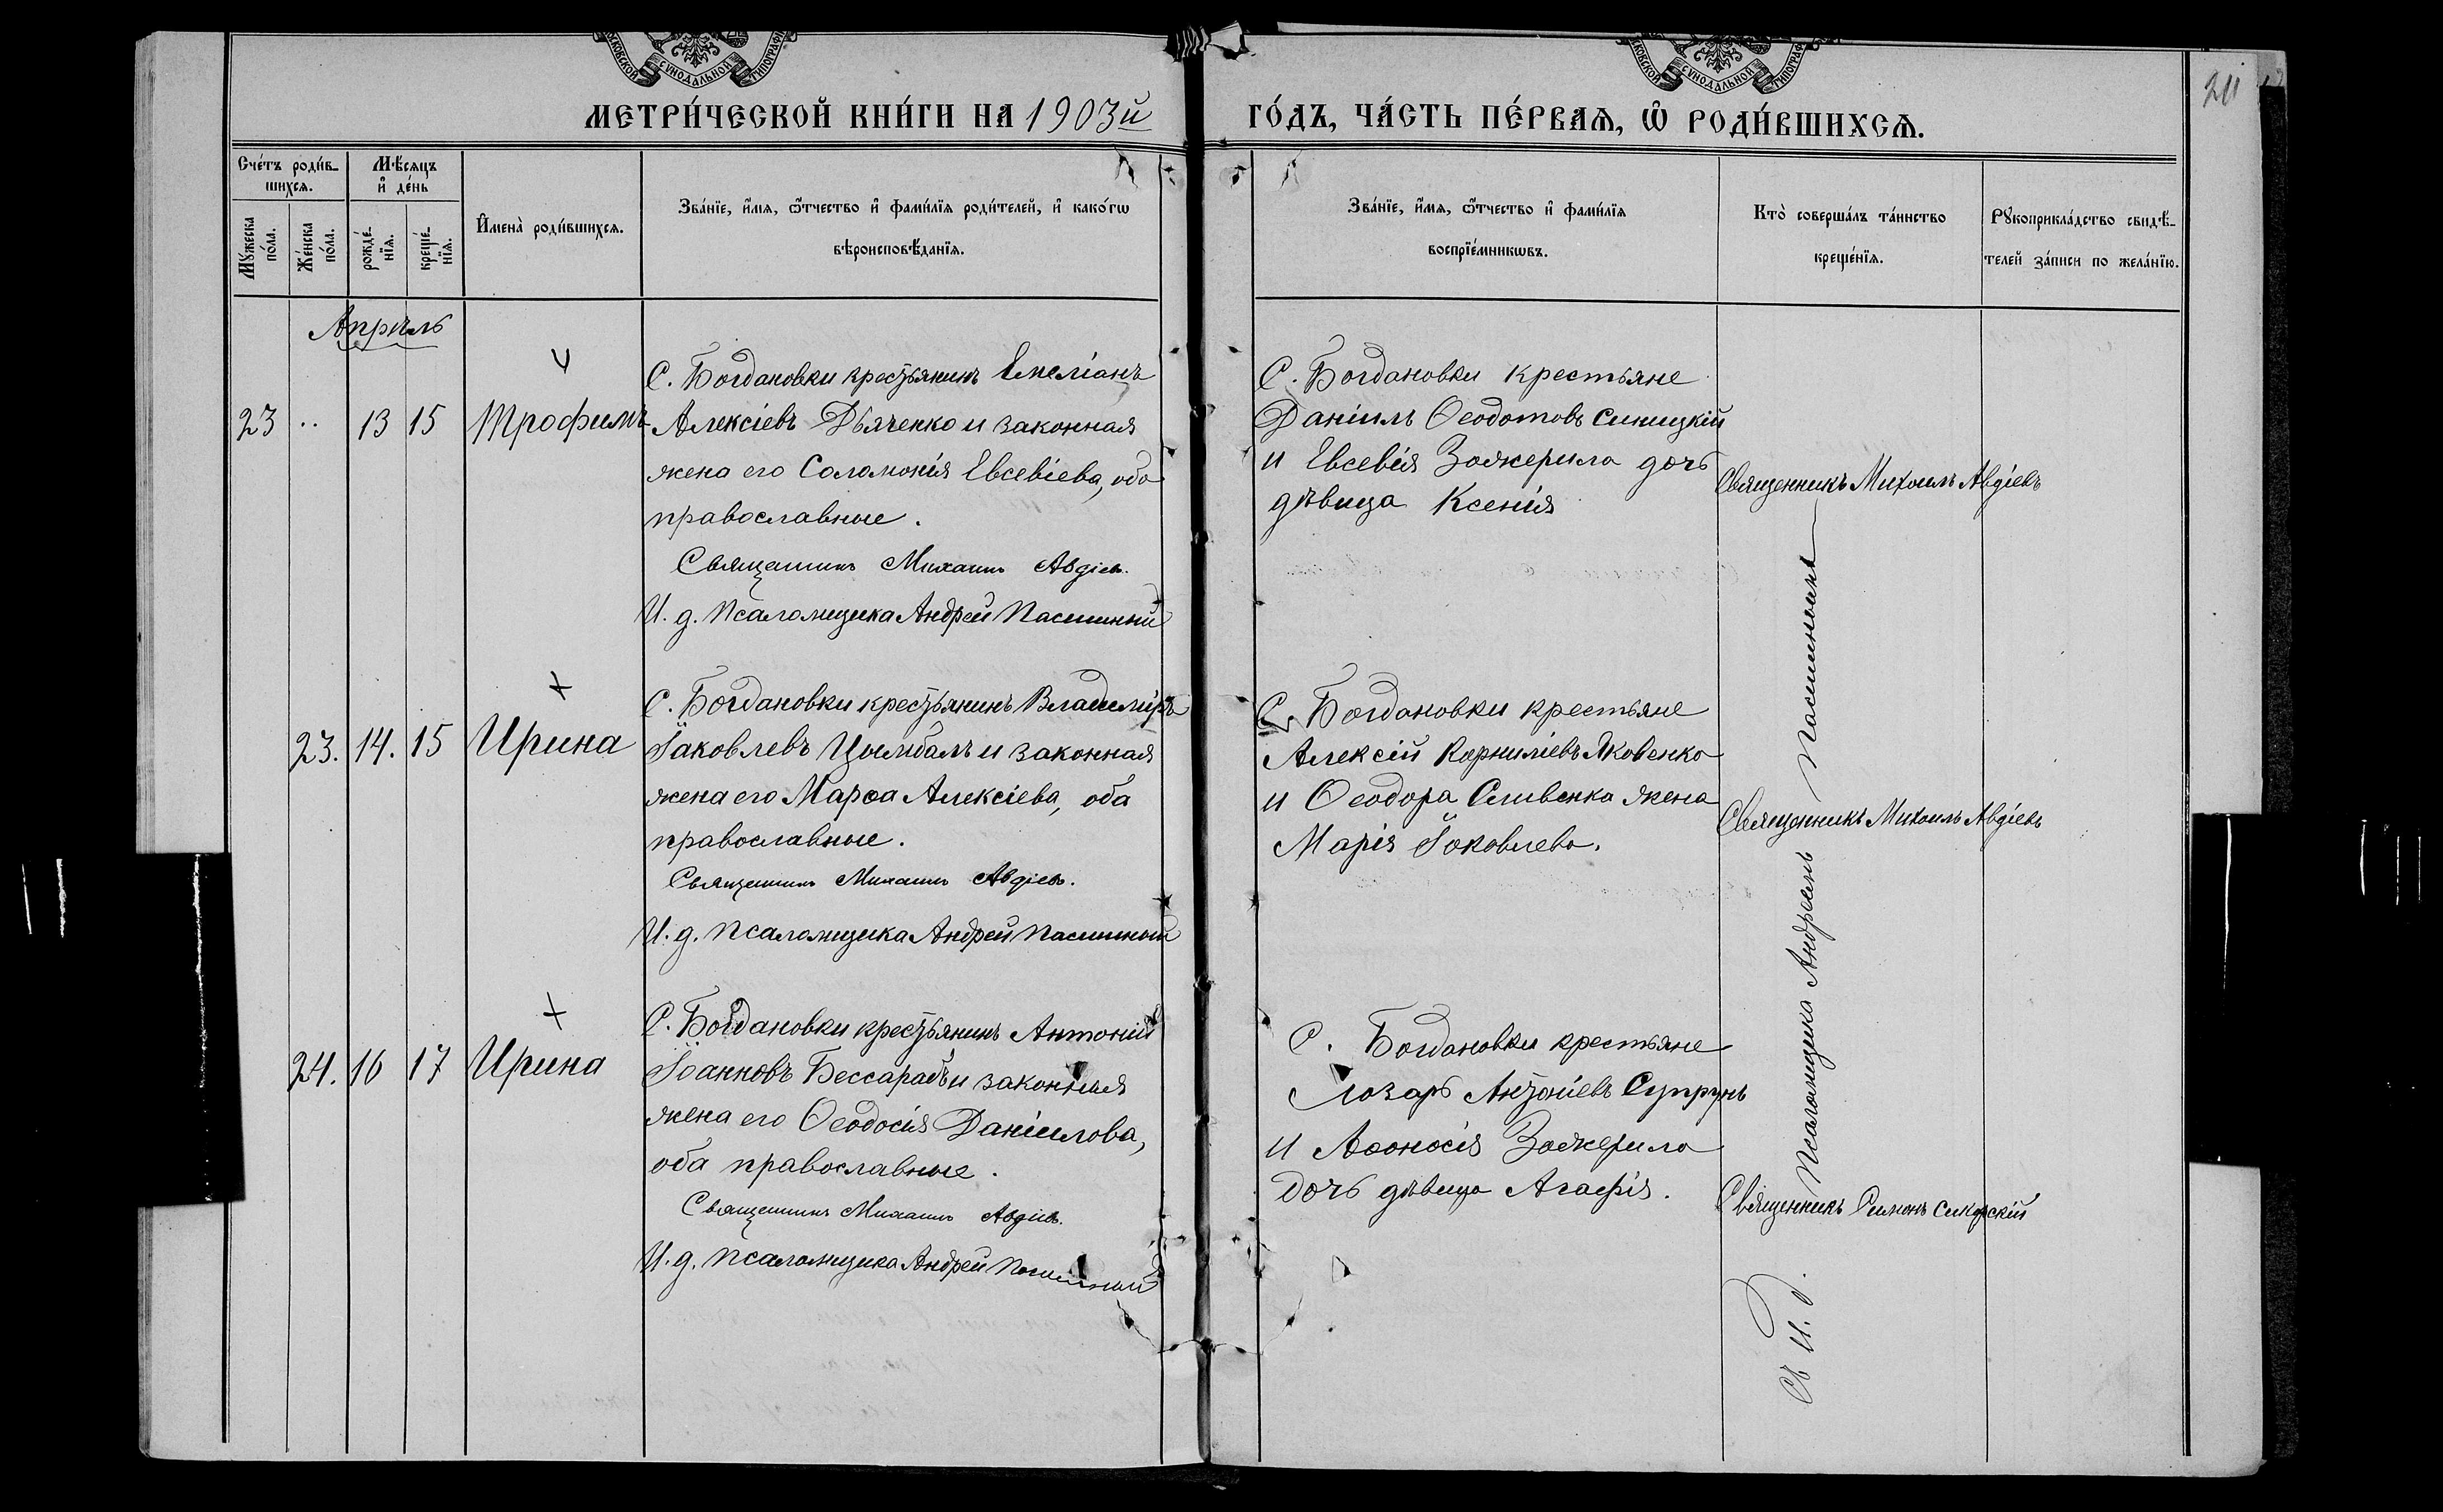 МОСКОВСКОЙ СѴНОДАЛЬНОЙ ТИПОГРАФІИ
МОСКОВСКОЙ СѴНОДАЛЬНОЙ ТИПОГРАФІИ
МЕТРИ́ЧЕСКОЙ КНИ́ГИ НА 1903й ГО́ДЪ, ЧА́СТЬ ПЕ́РВАѦ, Ѽ РОДИ́ВШИХСѦ.
211
Сче́тъ роди́в-
шихсѧ.
Мѣ́сѧцъ
и҆ де́нь
Мꙋ́жеска
по́ла.
Же́нска
по́ла.
рожде́-
нїѧ.
креще́-
нїѧ.
И҆мена̀ роди́вшихсѧ.
Зва́нїе, и҆́мѧ, ѻ҆́тчество и҆ фами́лїѧ роди́телей, и҆ како́гѡ
вѣроисповѣ́данїѧ.
Зва́нїе, и҆́мѧ, ѻ҆́тчество и҆ фами́лїѧ
воспрїе́мникѡвъ.
Кто̀ соверша́лъ та́инство
креще́нїѧ.
Рꙋкоприкла́дство свидѣ́-
телей за́писи по жела́нїю.
Апрѣль
23 .. 13 15 Трофимъ
С. Богдановки крестьянинъ Емеліанъ
Алексіевъ Дьяченко и законная
жена его Соломонія Евсевіева, оба
православные.
Священникъ Михаилъ Авдіевъ.
И. д. псаломщика Андрей Пасишный
С. Богдановки крестьяне
Даніилъ Ѳеодотовъ Синицкій
и Евсевія Зажерила дочь
дѣвица Ксенія
Священникъ Михаилъ Авдіевъ
23. 14. 15 Ирина
С. Богдановки крестьянинъ Владиміръ
Іаковлевъ Цымбалъ и законная
жена его Марѳа Алексіева, оба
православные.
Священникъ Михаилъ Авдіевъ.
И. д. псаломщика Андрей Пасишный
С. Богдановки крестьяне
Алексій Корниліевъ Яковенко
и Ѳеодора Сливенка жена
Марія Іаковлева.
Священникъ Михаилъ Авдіевъ
24. 16 17 Ирина
С. Богдановки крестьянинъ Антоній
Іоанновъ Бессарабъ и законная
жена его Ѳеодосія Даніилова,
оба православные.
Священникъ Михаилъ Авдіевъ.
И. д. псаломщика Андрей Пасишный
С. Богдановки крестьяне
Лазарь Антоніевъ Супрунъ
и Аѳонасія Зажерила
дочь дѣвица Агафія.
Священникъ Симонъ Сикорскій
Съ и. д. псаломщика Андреемъ Пасишнымъ